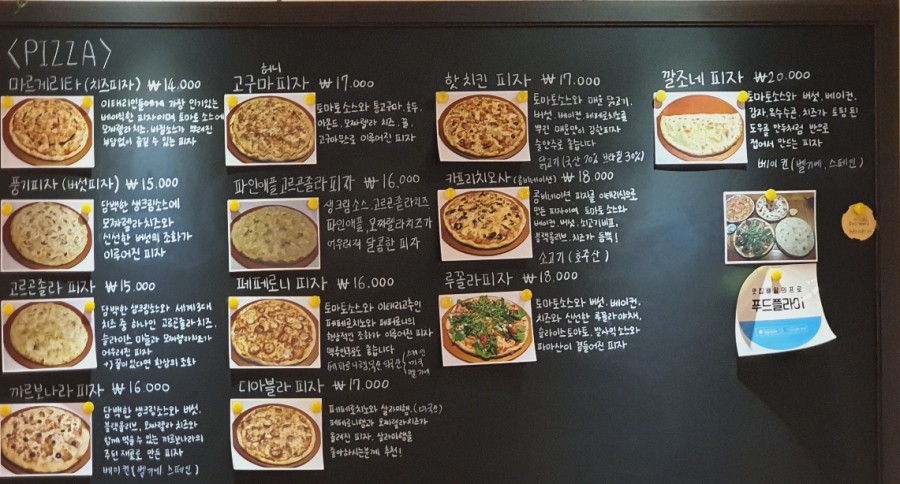 <PIZZA>
마르게리타 (치즈피자) ₩14.000
이태리인들에게 가장 인기있는
베이직한 피자이며 토마토 소스에
모짜렐라 치즈, 바질소스가 뿌려진
부담없이 즐길 수 있는 피자
풍기피자 (버섯피자) ₩15.000
담백한 생크림소스에
모짜렐라치즈와
신선한 버섯의 조화가
이루어진 피자
고르곤졸라 피자 ₩15.000
담백한 생크림소스와 세계3대
치즈 중 하나인 고르곤졸라치즈,
슬라이스 마늘과 모짜렐라치즈가
어우러진 피자
꿀이있다면 환상의 조화
까르보나라 피자 ₩16.000
담백한 생크림소스와 버섯,
블랙올리브, 모짜렐라 치즈와
함께 먹을수 있는 까르보나라의
주된 재료로 만든 피자
베이컨 (벨기에, 스페인)
허니
고구마피자 ₩17.000
토마토소스와 통고구마, 호두,
아몬드, 모짜렐라 치즈, 콘,
고구마무스로 이루어진 피자
파인애플고르곤졸라피자 ₩16.000
생크림소스, 고르곤졸라치즈
파인애플, 모짜렐라치즈가
어우러져 달콤한 피자
페페로니 피자 ₩16.000
토마토소스와 이태리고추인
페페로치노와 페페로니의
환상적인 조화가 이루어진 피자
맥주안주로도 좋습니다
스페인
미국
벨기에
디아블라 피자 ₩17.000
페페로치노와 살라미햄, (미국산)
페페로니햄과 모짜렐라치즈가
올려진 피자. 살라미햄을
좋아하시는분께 추천!
핫치킨 피자 ₩17.000
토마토소스와 매운 닭고기,
버섯, 베이컨, 페페로치노를
뿌린 매운맛이 강한피자
술안주로 좋습니다
닭고기 (국산 70% 브라질 30%)
카프리치오사 (콤비네이션) ₩18.000
콤비네이션 피자를 이태리식으로
만든 피자이며 토마토 소스와
베이컨, 버섯, 쇠고기비프,
블랙올리브, 치즈가 듬뿍!
소고기 (호주산)
루꼴라피자 ₩18.000
토마토소스와 버섯, 베이컨,
치즈와 신선한 루꼴라야채,
슬라이스토마토, 발사믹소스와
파마산이 곁들어진 피자
깔조네 피자 ₩20.000
토마토소스와 버섯, 베이컨,
감자, 옥수수콘, 치즈가 토핑 된
도우를 만두처럼 반으로
접어서 만드는 피자
베이컨 (벨기에, 스페인)
푸드플라이